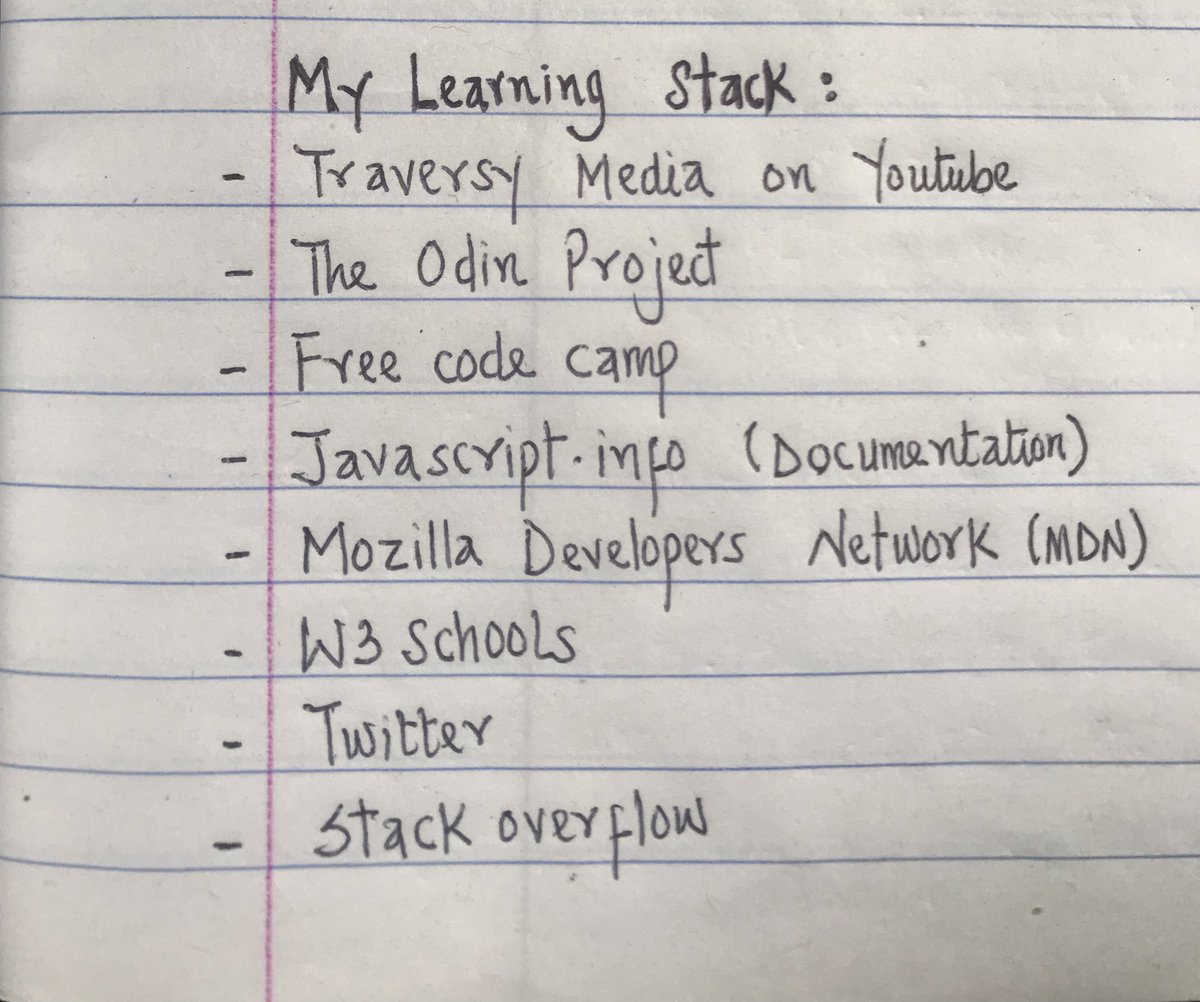 My Learning Stack :
- Traversy Media on Youtube
- The Odin Project
- Free code camp
- Javascript.info (Documentation)
- Mozilla Developers Network (MDN)
- W3 Schools
- Twitter
- Stack overflow